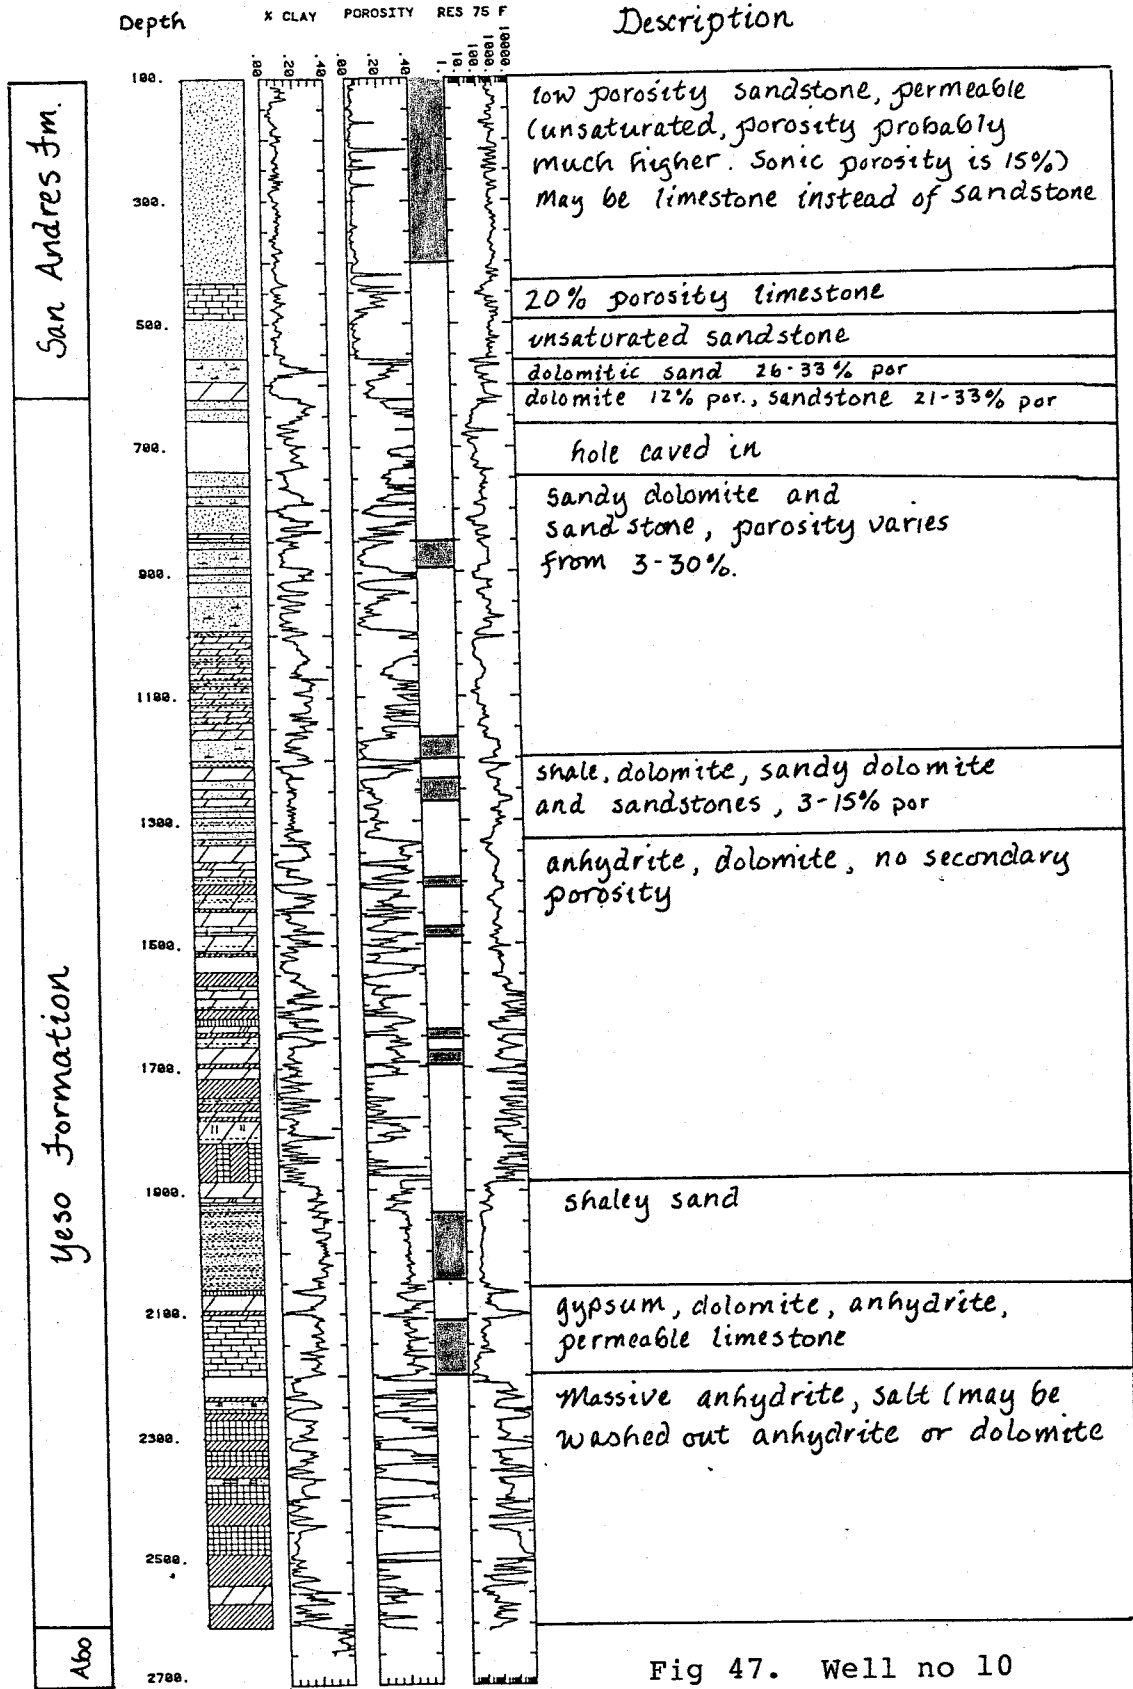 Depth
% CLAY POROSITY RES 75 F
Description
.00 .20 .40 .00 .20 .40 .1 10. 100. 1000. 10000.
San Andres Fm.
Yeso Formation
Abo
100.
300.
500.
700.
900.
1100.
1300.
1500.
1700.
1900.
2100.
2300.
2500.
2700.
low porosity sandstone, permeable
(unsaturated, porosity probably
much higher. Sonic porosity is 15%)
May be limestone instead of sandstone
20% porosity limestone
unsaturated sandstone
dolomitic sand 26-33% por
dolomite 12% por., sandstone 21-33% por
hole caved in
sandy dolomite and
sandstone, porosity varies
from 3-30%.
shale, dolomite, sandy dolomite
and sandstones, 3-15% por
anhydrite, dolomite, no secondary
porosity
shaley sand
gypsum, dolomite, anhydrite,
permeable limestone
Massive anhydrite, salt (may be
washed out anhydrite or dolomite
Fig 47. Well no 10